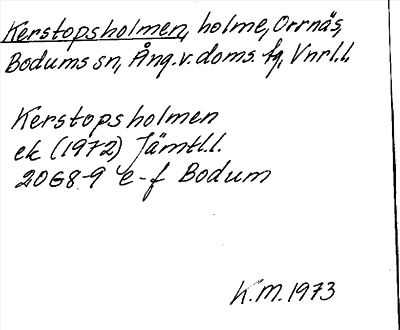 Kerstopsholmen, holme, Orrnäs,
Bodums sn, Ång.v.doms.fg, Vnrl.l.
Kerstopsholmen
ek (1972) Jämtl.l.
2068-9 e-f Bodum
K.M.1973